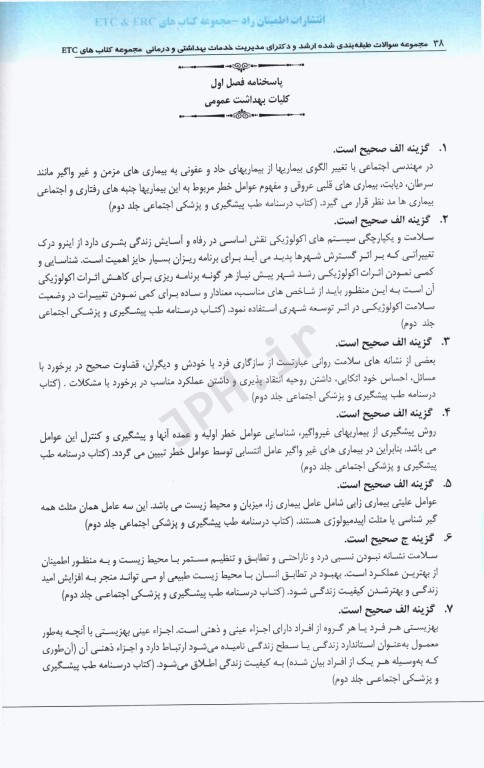 انتشارات اطمینان راد -مجموعه کتاب های ETC & ERC
۳۸ مجموعه سوالات طبقه‌بندی شده ارشد و دکترای مدیریت خدمات بهداشتی و درمانی مجموعه کتاب های ETC
پاسخنامه فصل اول
کلیات بهداشت عمومی
۱. گزینه الف صحیح است.
در مهندسی اجتماعی با تغییر الگوی بیماریها از بیماریهای حاد و عفونی به بیماری های مزمن و غیر واگیر مانند
سرطان، دیابت، بیماری های قلبی عروقی و مفهوم عوامل خطر مربوط به این بیماریها جنبه های رفتاری و اجتماعی
بیماری ها مد نظر قرار می گیرد. (کتاب درسنامه طب پیشگیری و پزشکی اجتماعی جلد دوم)
۲. گزینه الف صحیح است.
سلامت و یکپارچگی سیستم های اکولوژیکی نقش اساسی در رفاه و آسایش زندگی بشری دارد از اینرو درک
تغییراتی که بر اثر گسترش شهرها پدید می آید برای برنامه ریزان بسیار حایز اهمیت است. شناسایی و
کمی نمودن اثرات اکولوژیکی رشد شهر پیش نیاز هر گونه برنامه ریزی برای کاهش اثرات اکولوژیکی
آن است به این منظور باید از شاخص های مناسب، معنادار و ساده برای کمی نمودن تغییرات در وضعیت
سلامت اکولوژیکی در اثر توسعه شهری استفاده نمود. (کتاب درسنامه طب پیشگیری و پزشکی اجتماعی
جلد دوم)
۳. گزینه الف صحیح است.
بعضی از نشانه های سلامت روانی عبارتست از سازگاری فرد با خودش و دیگران، قضاوت صحیح در برخورد با
مسائل، احساس خود اتکایی، داشتن روحیه انتقاد پذیری و داشتن عملکرد مناسب در برخورد با مشکلات . (کتاب
درسنامه طب پیشگیری و پزشکی اجتماعی جلد دوم)
۴. گزینه الف صحیح است.
روش پیشگیری از بیماریهای غیرواگیر، شناسایی عوامل خطر اولیه و عمده آنها و پیشگیری و کنترل این عوامل
می باشد. بنابراین در بیماری های غیر واگیر عامل انتسابی توسط عوامل خطر تبیین می گردد. (کتاب درسنامه طب
پیشگیری و پزشکی اجتماعی جلد دوم)
۵. گزینه الف صحیح است.
عوامل علیتی بیماری زایی شامل عامل بیماری زا، میزبان و محیط زیست می باشد. این سه عامل همان مثلث همه
گیر شناسی یا مثلث اپیدمیولوژی هستند. (کتاب درسنامه طب پیشگیری و پزشکی اجتماعی جلد دوم)
۶. گزینه ج صحیح است.
سلامت نشانه نبودن نسبی درد و ناراحتی و تطابق و تنظیم مستمر با محیط زیست و به منظور اطمینان
از بهترین عملکرد است. بهبود در تطابق انسان با محیط زیست طبیعی او می تواند منجر به افزایش امید
زندگی و بهترشدن کیفیت زندگی شود. (کتاب درسنامه طب پیشگیری و پزشکی اجتماعی جلد دوم)
۷. گزینه الف صحیح است.
بهزیستی هر فرد یا هر گروه از افراد دارای اجزاء عینی و ذهنی است. اجزاء عینی بهزیستی با آنچه به‌طور
معمول به‌عنوان استاندارد زندگی یا سطح زندگی نامیده می‌شود ارتباط دارد و اجزاء ذهنی آن (آن‌طوری
که به‌وسیله هر یک از افراد بیان شده) به کیفیت زندگی اطلاق می‌شود. (کتاب درسنامه طب پیشگیری
و پزشکی اجتماعی جلد دوم)
JPH.ir